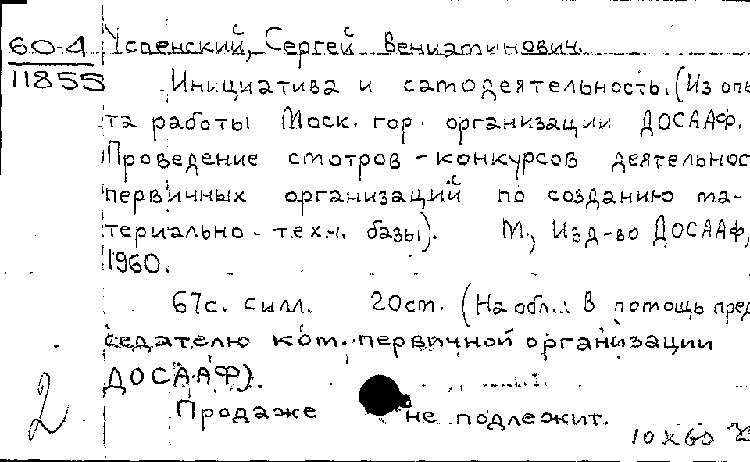 60-4 Успенский, Сергей Вениаминович.
11855 Инициатива и самодеятельность. (Из опы
та работы Моск. гор. организации ДОСААФ.
Проведение смотров-конкурсов деятельнос
первичных организаций по созданию ма-
териально-техн. базы). М., Изд-во ДОСААФ,
1960.
67с. с илл. 20 см. (На обл.: В помощь пред
седателю ком. первичной организации
ДОСААФ).
2 Продаже не подлежит.
10 X 60